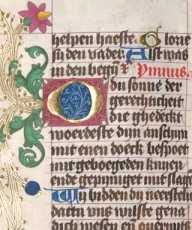 helpen haeste Glorie
si den vader Alst was
in den begin Ymnus
O du sonne der
gerechticheit
die ghedeckt
voerdeste dijn anschijn
mit enen doeck bespot
mit geboegeden knien
ende gepiniget mit slage
Wij bidden du
dattu ons